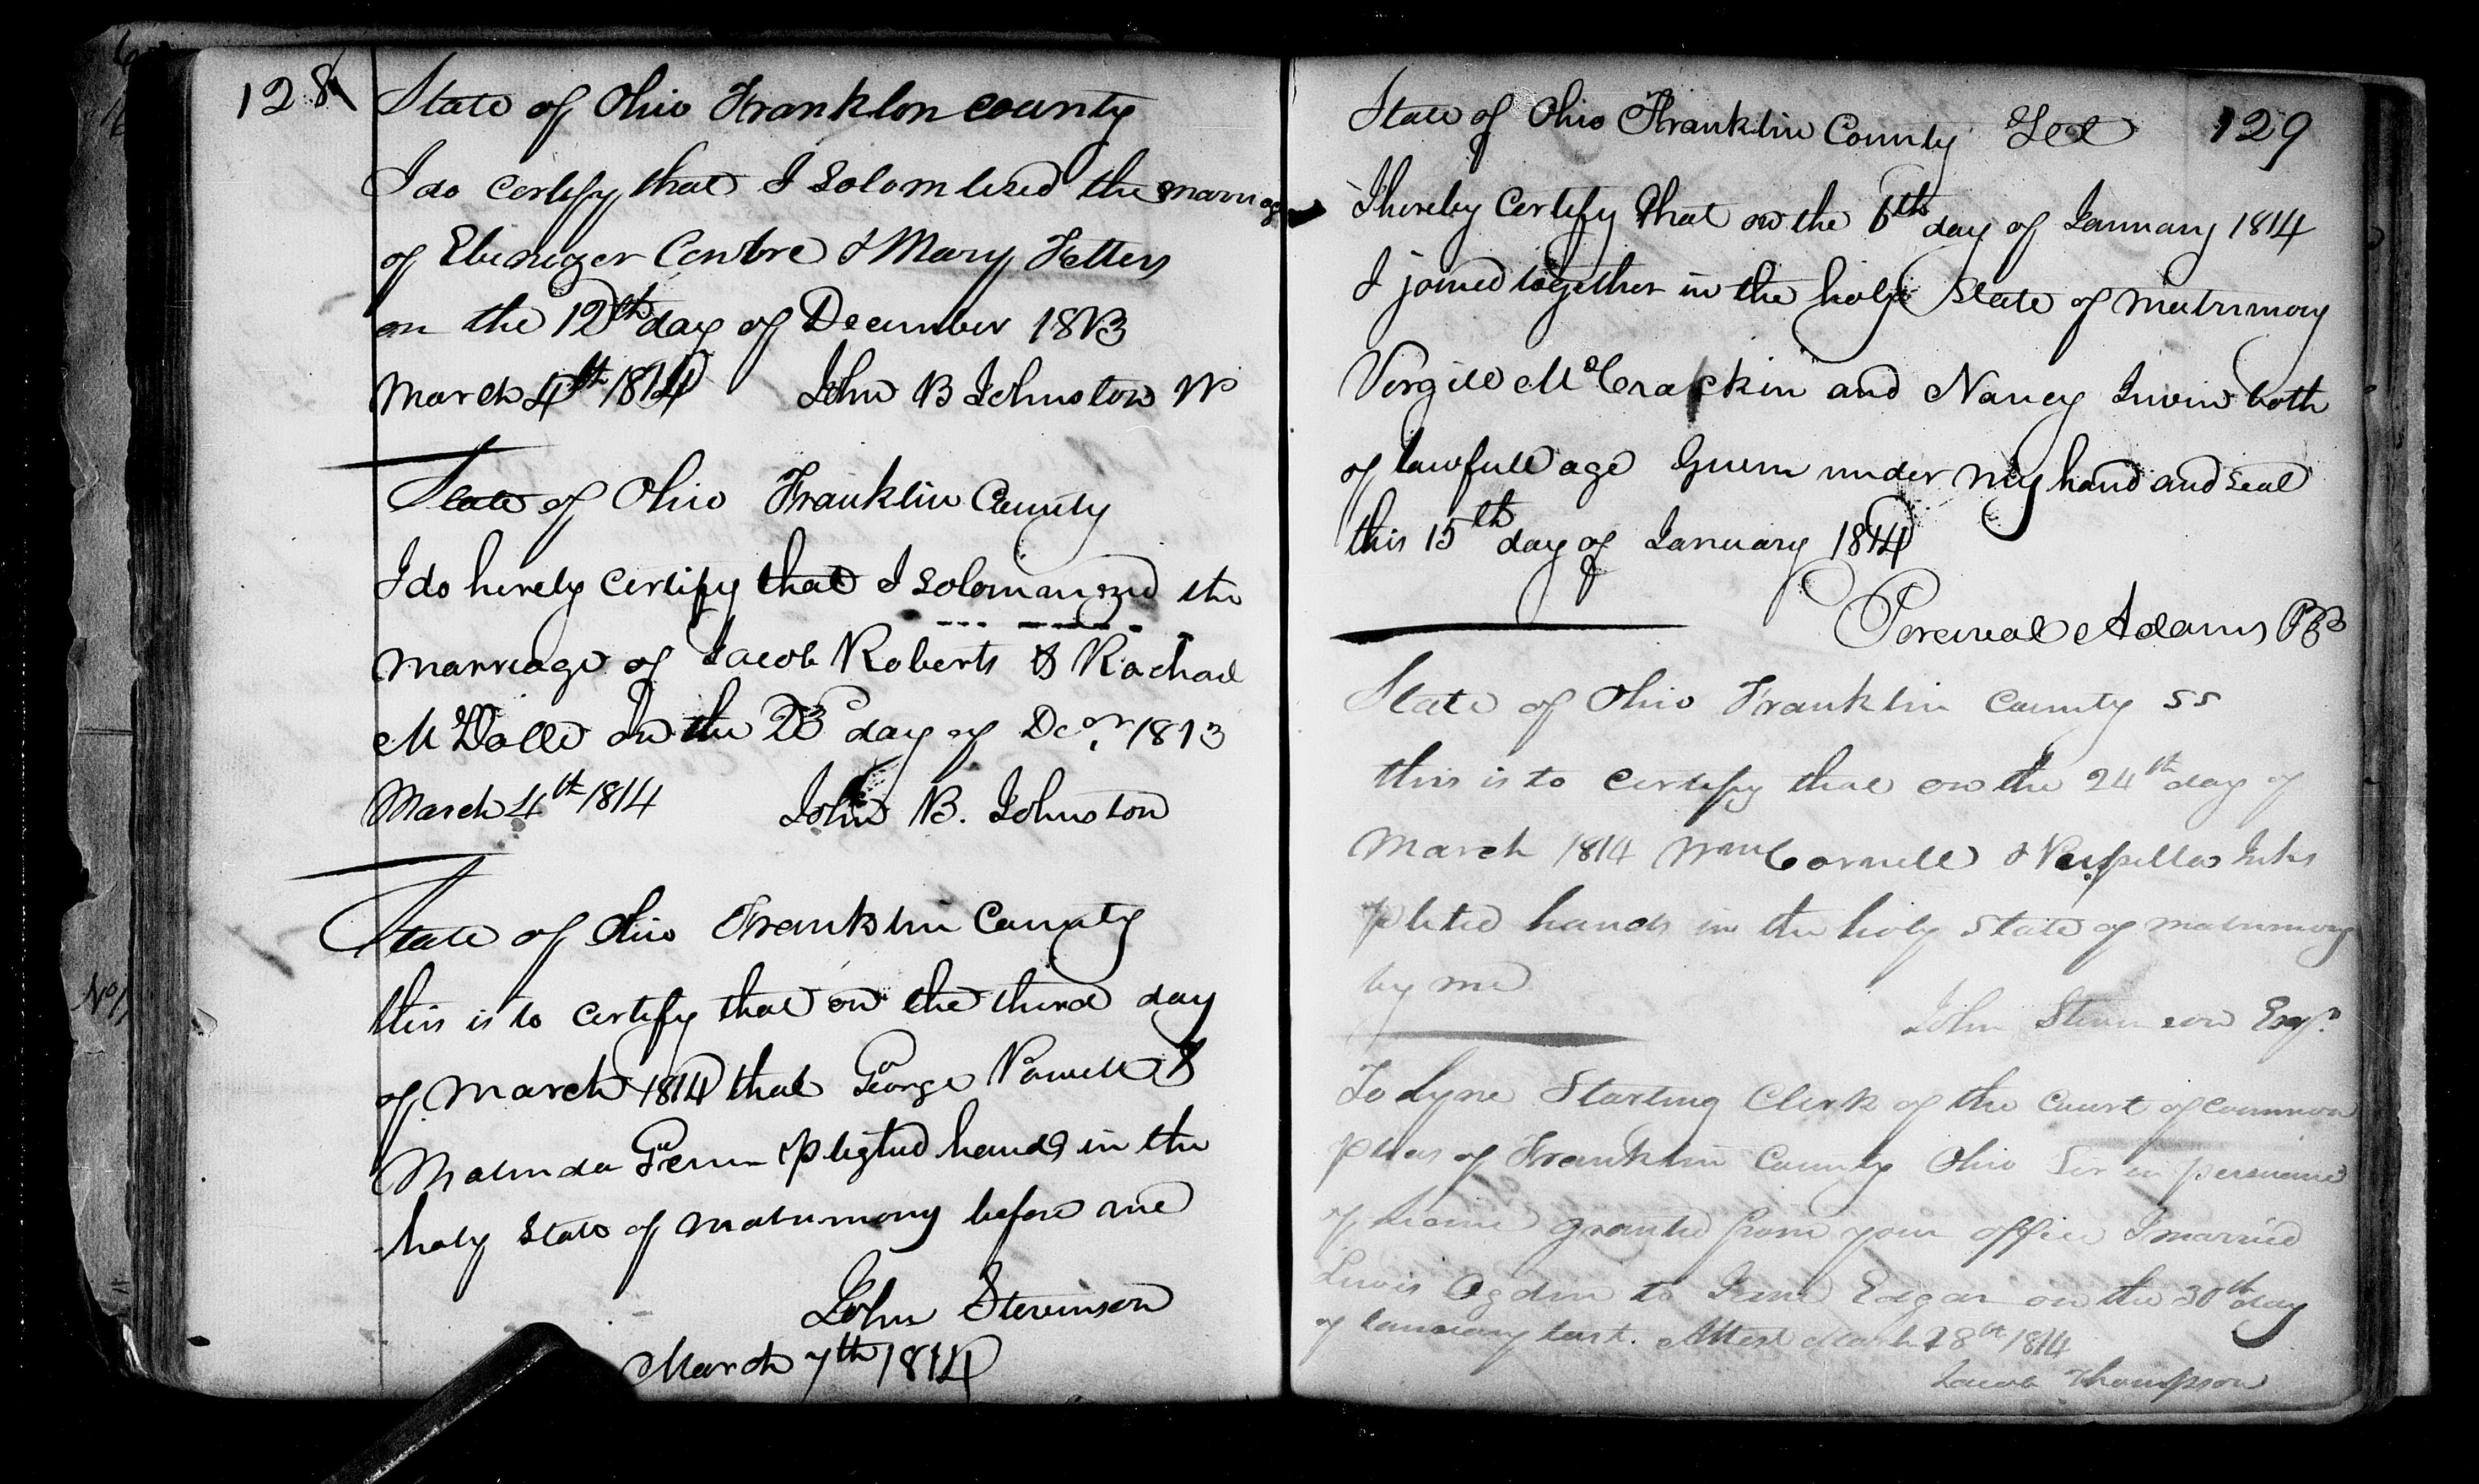 128
State of Ohio Franklon county
I do certify that I Solomlized the marriag
of Ebenezer Centre & Mary Fetters
on the 12th day of December 1813
March 4th 1814 John B Johnston
State of Ohio Franklin County
I do hereby certify that I Solomnized the
marriage of Jacob Roberts & Rachael
on the 23d day of Decr 1813
March 4th 1814 John B. Johnston
State of Ohio Franklin County
this is to certify that on the third day
of March 1814 that George Powell &
Malinda plighted hands in the
holy State of matrimony before me
John Stevinson
March 7th 1814
State of Ohio Franklin County 129
I hereby certify that on the 6th day of January 1814
I joined together in the holy State of matrimony
Virgill McCrackin and Nancy Irwin both
of lawfull age Given under my hand and Seal
this 15th day of January 1814
Percival Adams
State of Ohio Franklin County SS
this is to certify that on the 24th day of
March 1814 Wm Cornell &
plited hands in the holy State of matrimony
by me
John Stevinson Esqr
To Lyne Starling Clerk of the Court of common
pleas of Franklin County Ohio Sir in
of granted from your office I married
Lewis Ogden to Jane Edgar on the 30th day
of January last. Attest March 28th 1814
Jacob Thompson